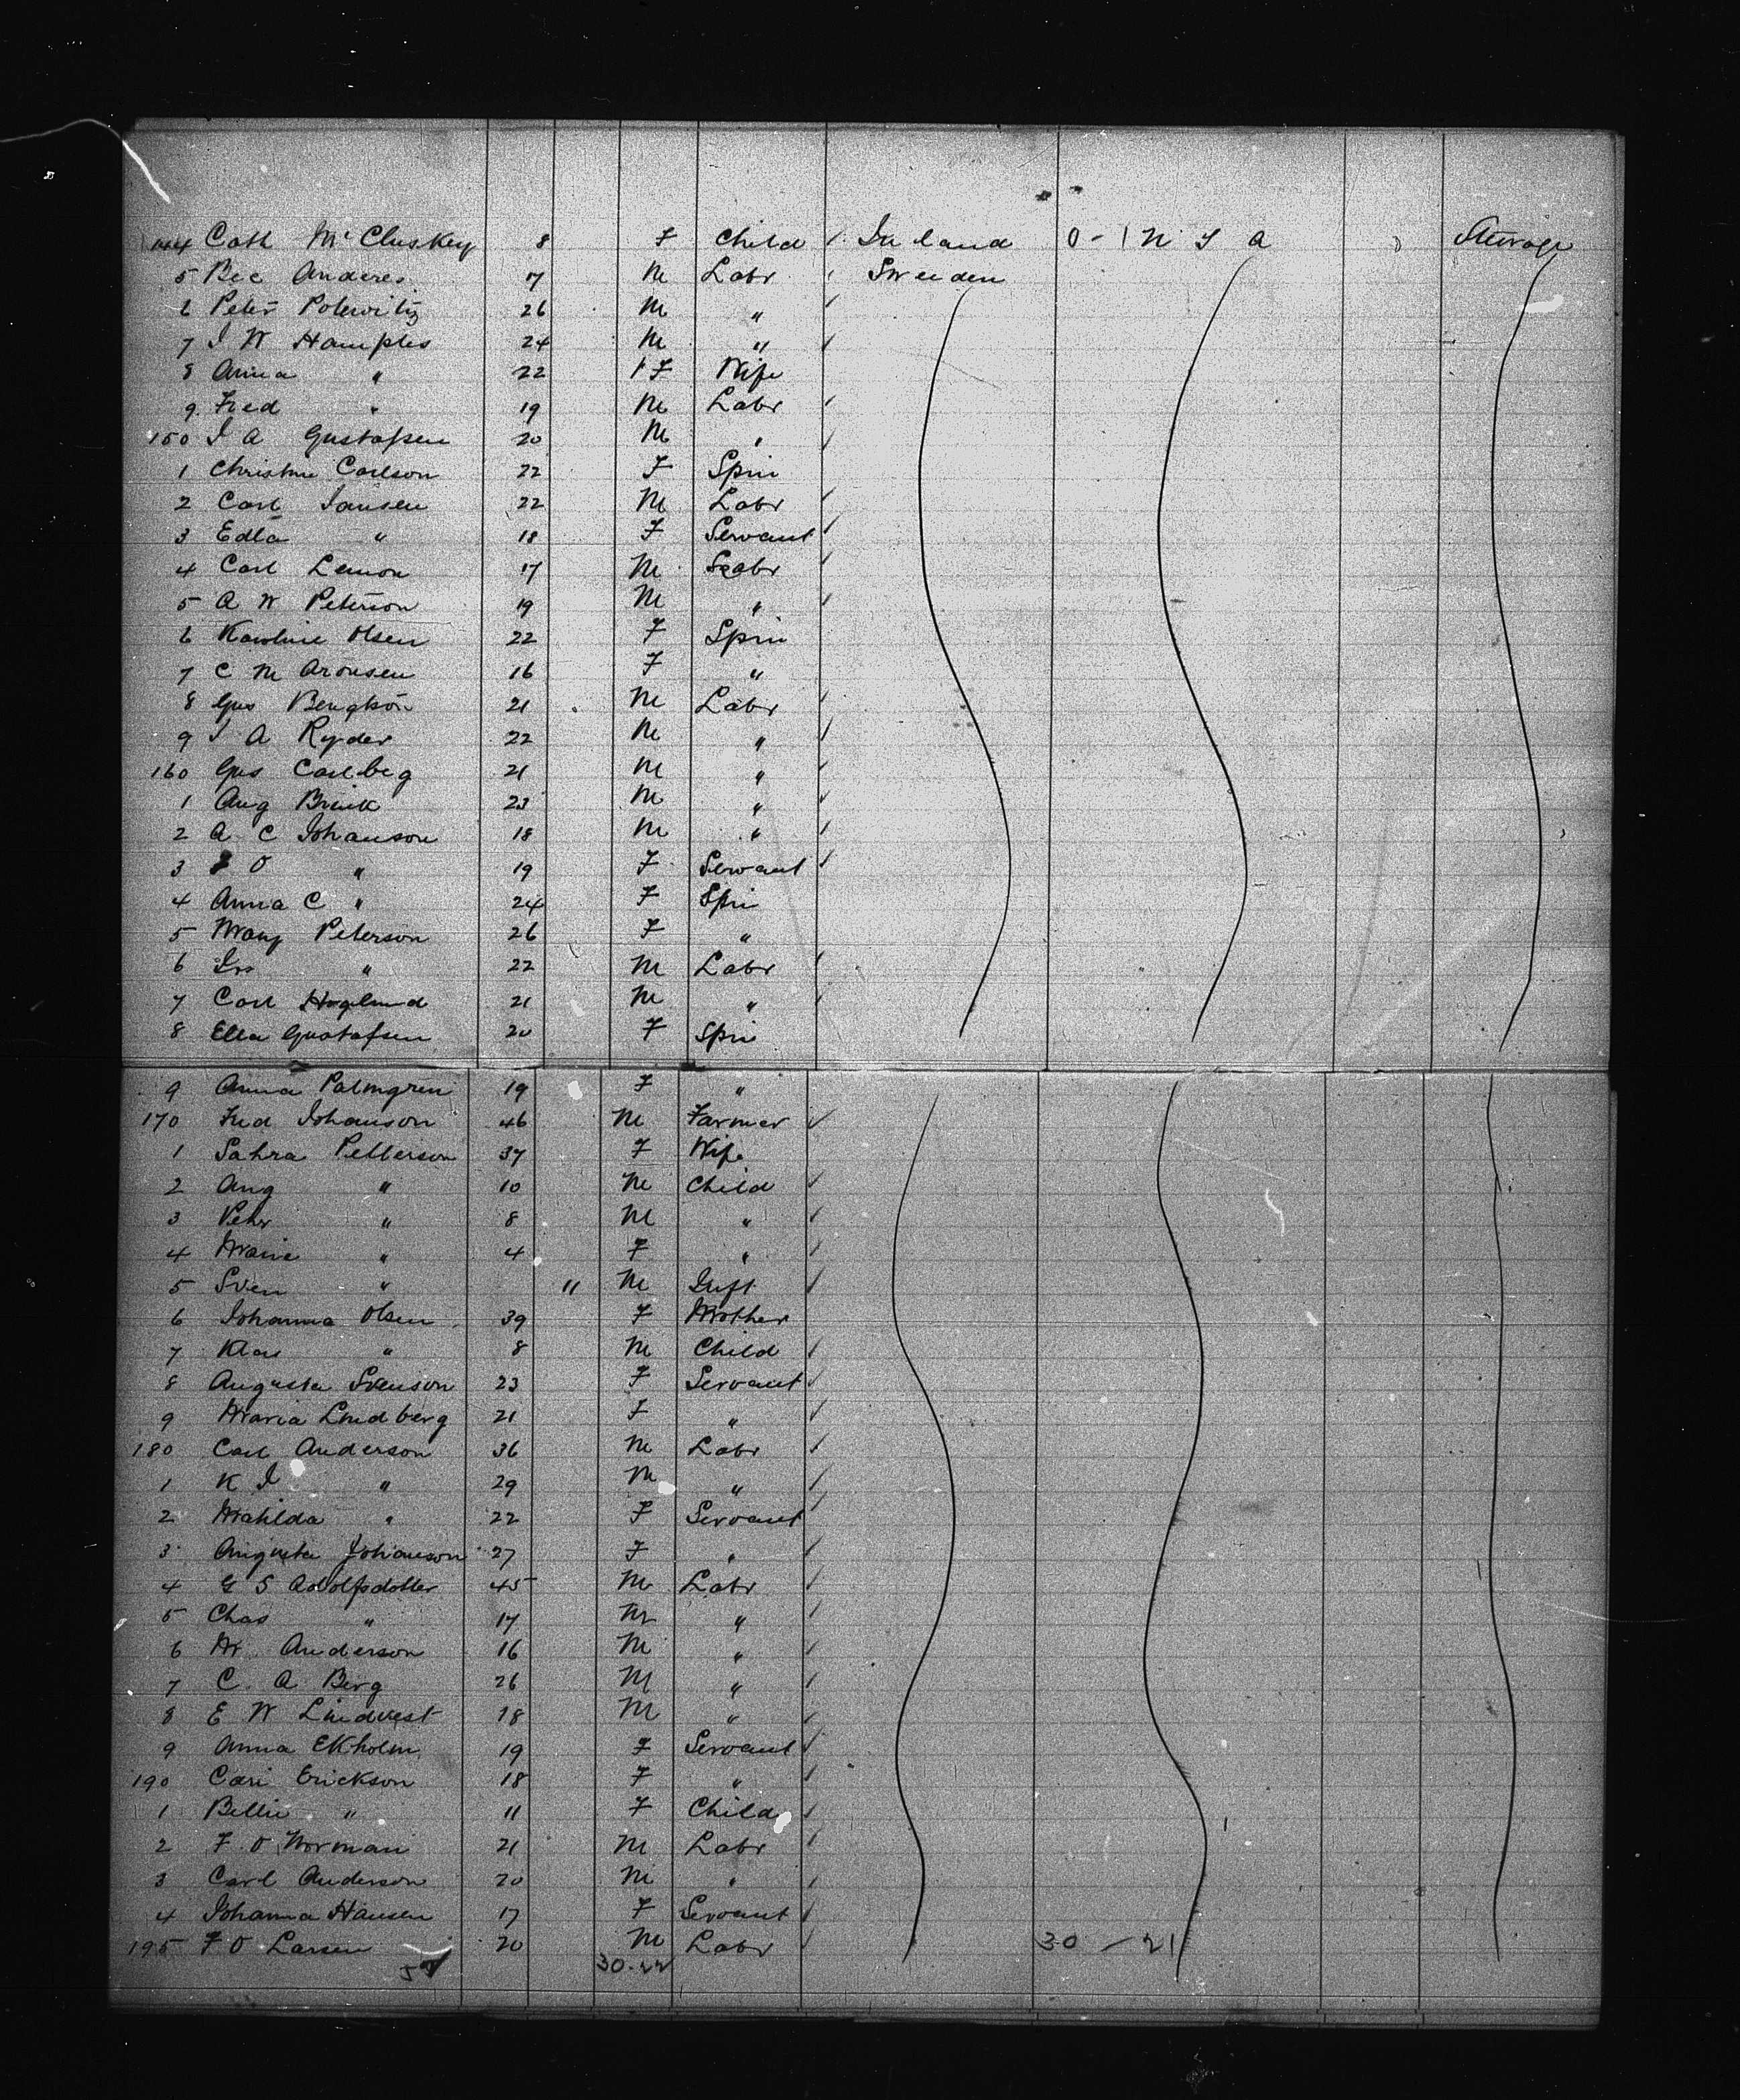 144 Cath McCluskey 8 F Child Ireland 0-1 U S A Steerage
5 Bec Anderes 17 M Labr Sweeden
6 Peter Polewitz 26 M "
7 J W Hamples 24 M "
8 Anna " 22 F Wife
9 Fred " 19 M Labr
150 J A Gustafsen 20 M "
1 Christine Carlson 22 F Spin
2 Carl Jansen 22 M Labr
3 Edla " 18 F Servant
4 Carl Lemon 17 M Labr
5 A W Peterson 19 M "
6 Karoline Olsen 22 F Spin
7 C M Aronsen 16 F "
8 Gus Bengtson 21 M Labr
9 J A Ryder 22 M "
160 Gus Carlberg 21 M "
1 Aug Brink 23 M "
2 A C Johanson 18 M "
3 O " 19 F Servant
4 Anna C " 24 F Spin
5 Mary Peterson 26 F "
6 " 22 M Labr
7 Carl Hoglund 21 M "
8 Ella Gustafsen 20 F Spin
9 Anna Palmgren 19 F "
170 Fred Johanson 46 M Farmer
1 Sahra Petterson 37 F Wife
2 Aug " 10 M Child
3 Pehr " 8 M "
4 Marie " 4 F "
5 Sven " 11 M Inft
6 Johanna Olsen 39 F Mother
7 Klas " 8 M Child
8 Augusta Svenson 23 F Servant
9 Maria Lindberg 21 F "
180 Carl Anderson 36 M Labr
1 K J " 29 M "
2 Mathilda " 22 F Servant
3 Augusta Johanson 27 F "
4 G S Adolfsdotter 45 M Labr
5 Chas " 17 M "
6 M Anderson 16 M "
7 C A Berg 26 M "
8 E W Lindvest 18 M "
9 Anna Ekholm 19 F Servant
190 Cari Erickson 18 F "
1 Bellie " 11 F Child
2 F O Norman 21 M Labr
3 Carl Anderson 20 M "
4 Johanna Hansen 17 F Servant
195 F O Larsen 20 M Labr 30 - 21
30-22